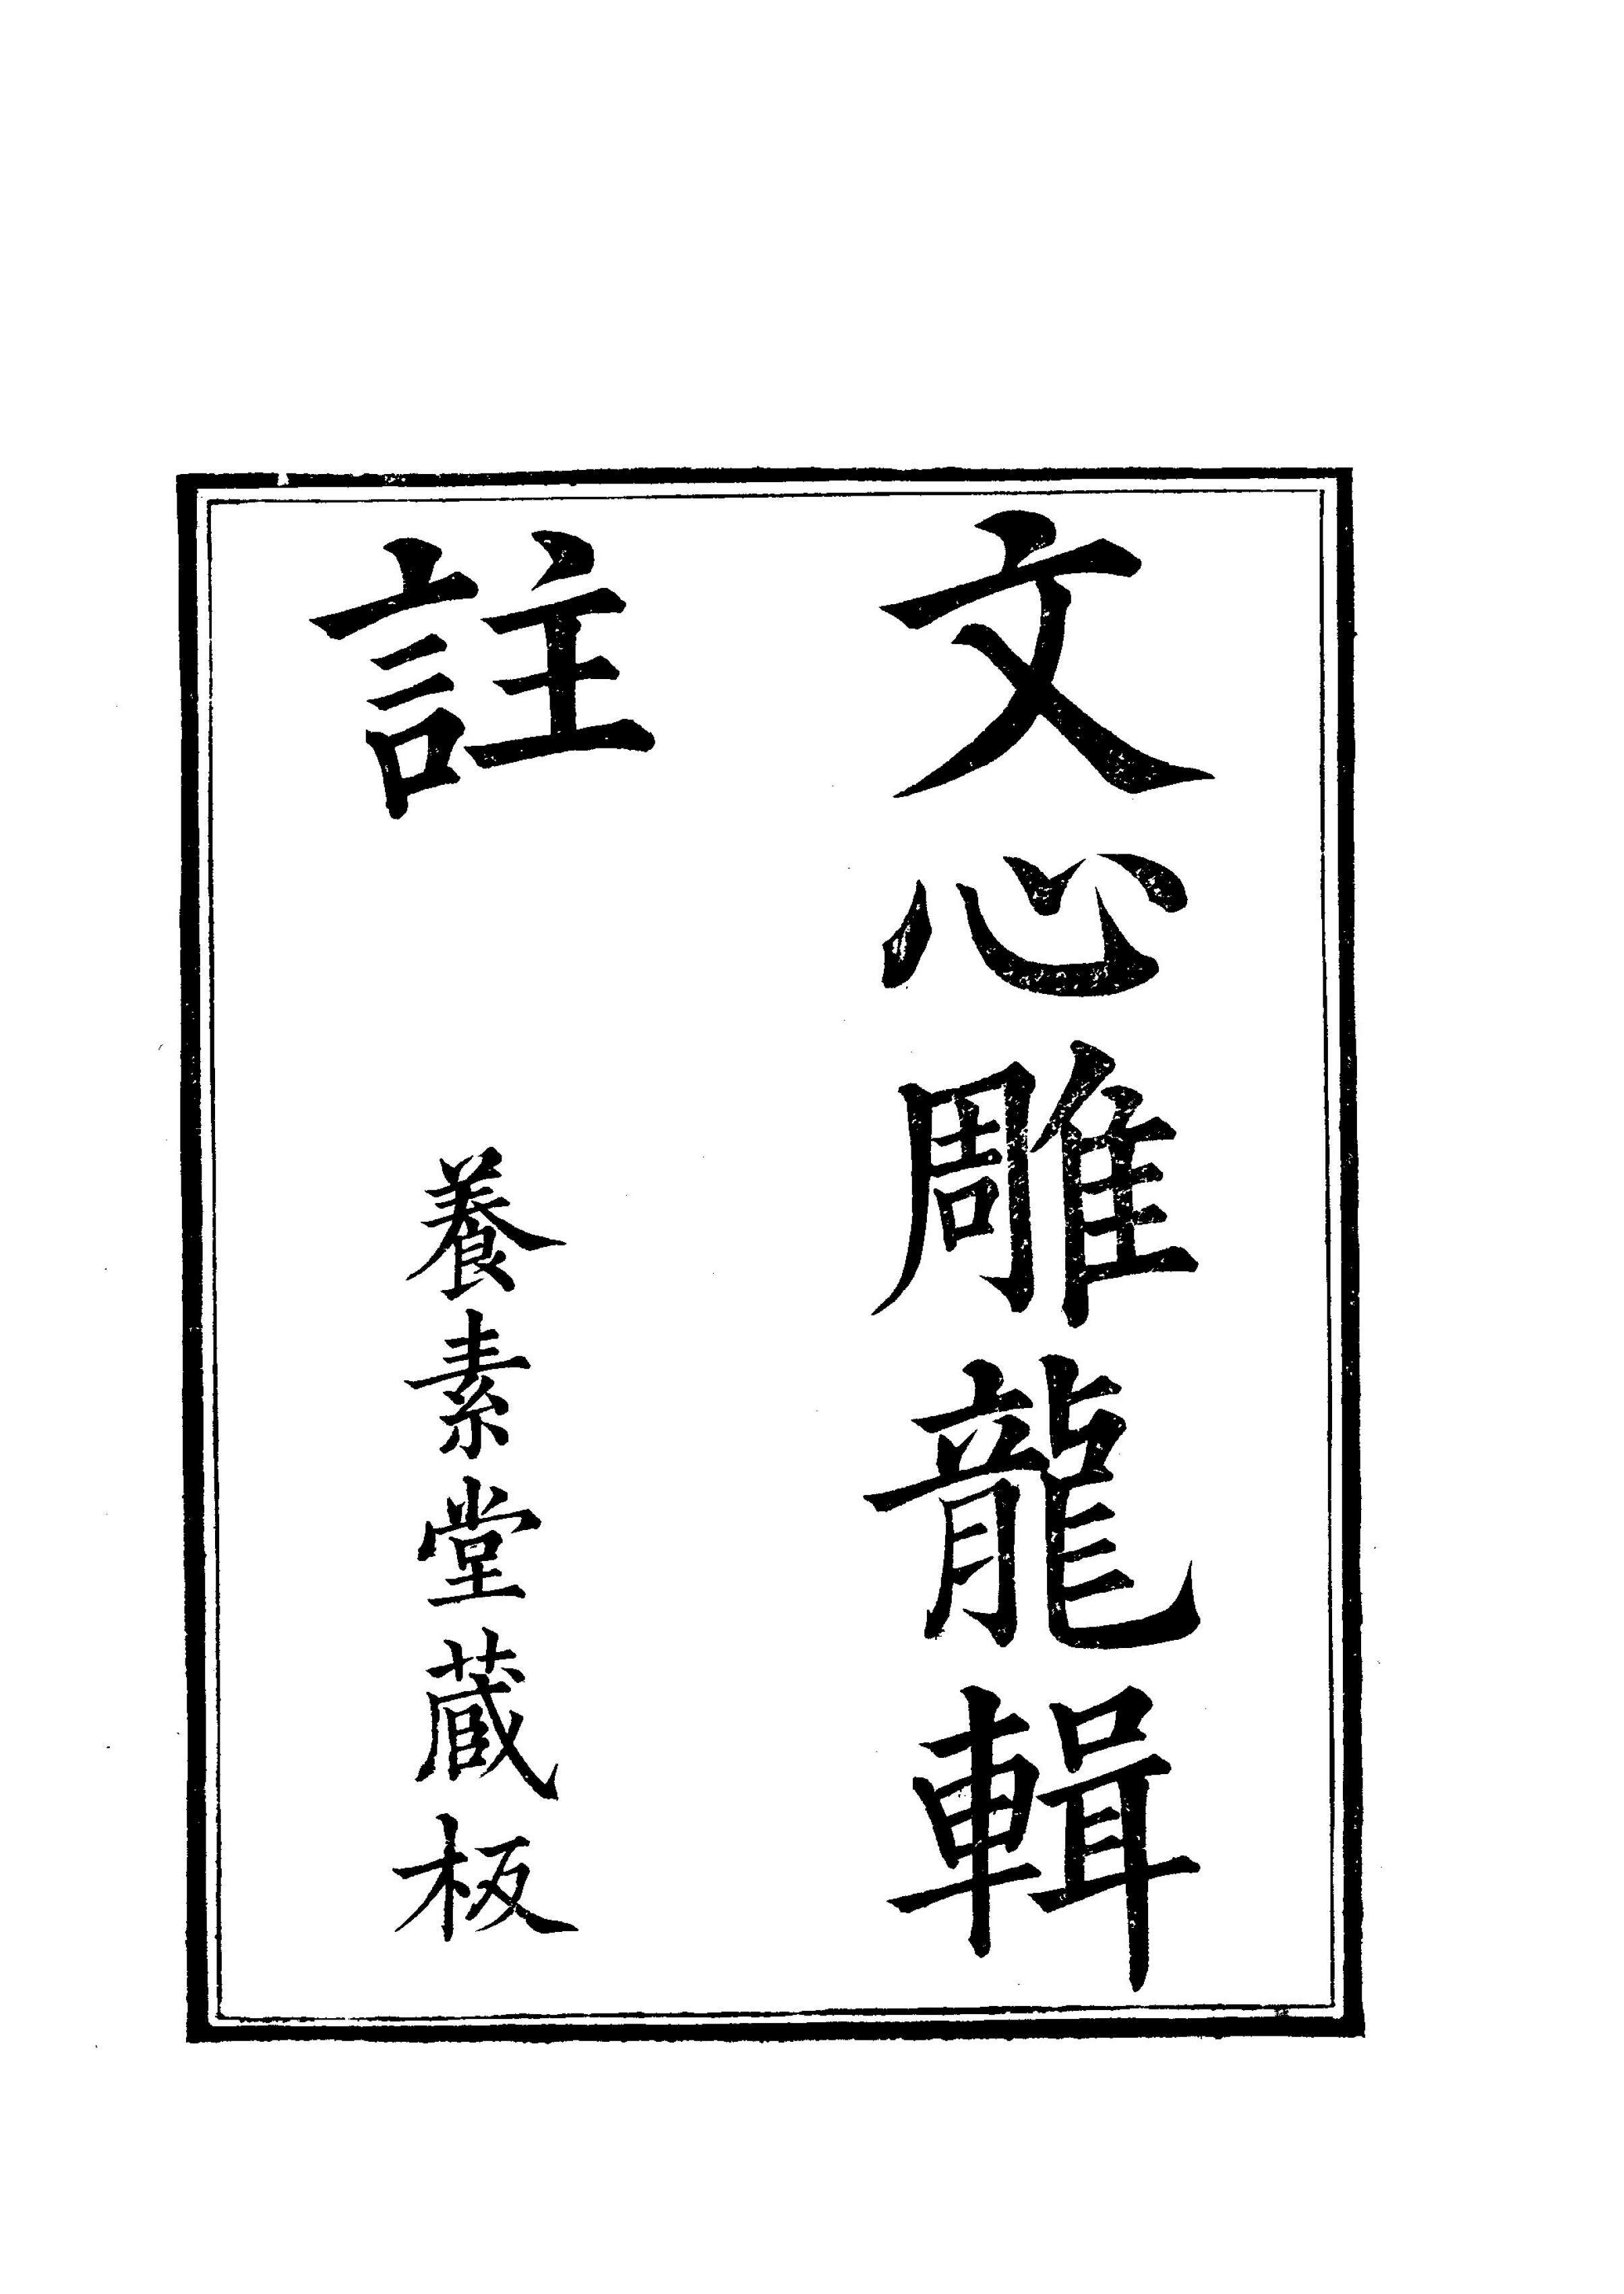 文心雕龍輯
註
養素堂藏板